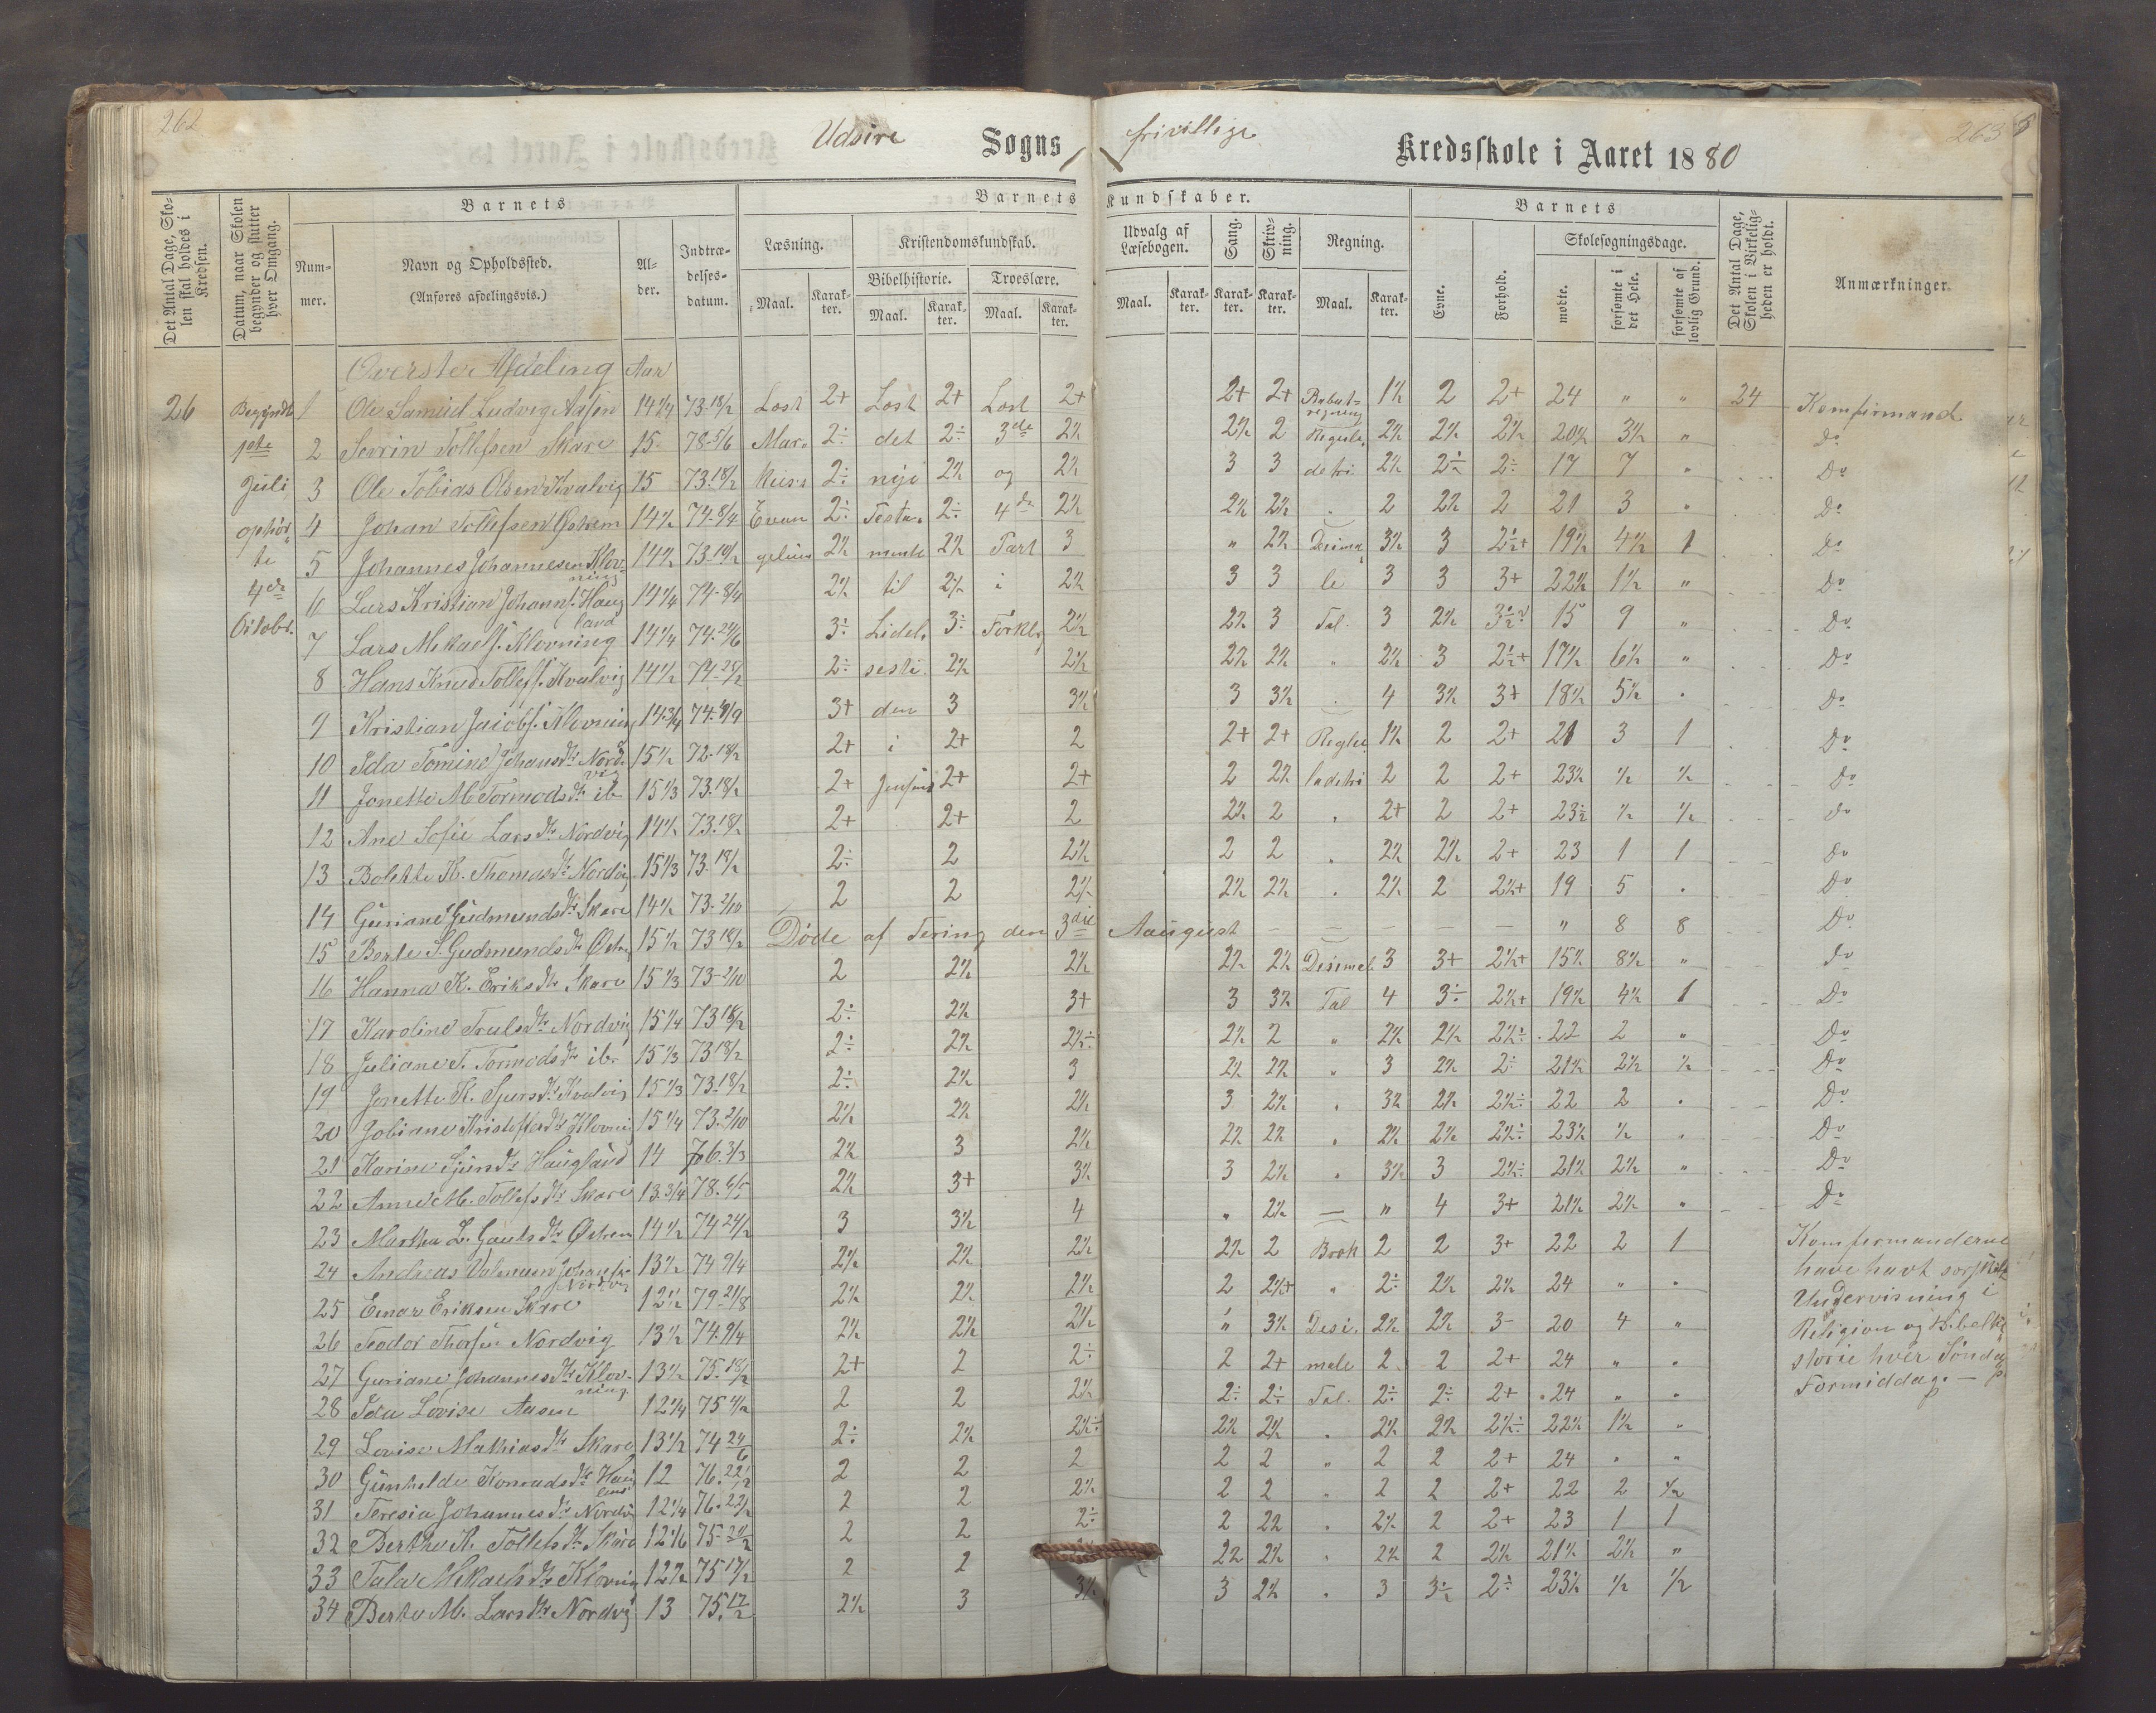 262
Udsire Sogns frivillige Kredsskole i Aaret 1880
263
Det Antal Dage, Skolen skal holdes i Kredsen.
Datum, naar Skolen begynder og slutter hver Omgang.
Barnets
Nummer.
Navn og Opholdssted.
(Anføres afdelingsvis.)
Alder.
Indtrædelsesdatum.
Barnets Kundskaber.
Læsning.
Maal. Karakter.
Kristendomskundskab.
Bibelhistorie.
Maal. Karakter.
Troeslære.
Maal. Karakter.
Udvalg af Læsebogen.
Maal. Karakter.
Sang.
Karakter.
Skrivning.
Karakter.
Regning.
Maal. Karakter.
Barnets
Evne.
Forhold.
Skolesøgningsdage.
mødte.
forsømte i det Hele.
forsømte af lovlig Grund.
Det Antal Dage, Skolen i Virkeligheden er holdt.
Anmærkninger.
Øverste Afdeling Aar
26 Begyndte 1ste Juli, ophørte 4de Oktobr.
1 Ole Samuel Ludvig Aasen 14 1/4 73-18/2 Læst 2+ Læst 2+ Læst 2+ 2+ 2+ Rabatregning 1½ 2 2+ 24 " " 24 Komfirmand
2 Sevrin Tollefsen Skare 15 78-5/6 Mar- 2÷ det 2÷ 3de 2½ 2½ 2 Regula 2½ 2½ 2½ 20½ 3½ " Do
3 Ole Tobias Olsen Kvalvig 15 73.18/2 kus's 2÷ nye 2½ og 2½ 3 3 detri 2½ 2÷ 2÷ 17 7 " Do
4 Johan Tollefsen Østrem 14½ 74-8/4 Evan 2÷ Testa- 2÷ 4de 2½ 2½ 2½ " 2 2½ 2 21 3 " Do
5 Johannes Johannesen Klovning 14½ 73.18/2 gelium 2½ mente 2½ Part 3 " 2½ Desima 3½ 3 2½+ 19½ 4½ 1 Do
6 Lars Kristian Johanns. Haugland 14 1/4 74-8/4 2½ til 2½ i 2½ 3 3 le 3 3 3+ 22½ 1½ " Do
7 Lars Mikaels. Klovning 14 1/4 74.24/6 3÷ Lidel- 3÷ Forkl. 2½ 2½ 3 Tal. 3 2½ 15 9 " Do
8 Hans Knud Tollefs. Kvalvig 14½ 2÷ sesti 2½ 2½ 2½ 2½ " 2½ 3 2½+ 17½ 6½ " Do
9 Kristian Jacobs. Klovning 14.3/4 3+ den 3 3½ 3 3½ " 4 3½ 3+ 18½ 5½ " Do
10 Ida Tomine Johans Dtr Nordvig 15½ 72-18/2 2+ i 2+ 2 2+ 2+ Regu 1½ 2 2+ 21 3 1 Do
11 Jonette M. Tormods Dtr ib 15 1/3 73.18/2 2+ 2+ 2+ 2 2½ ladetri 2 2 2+ 23½ ½ ½ Do
12 Ane Sofie Lars Dtr Nordvig 14½ 73.18/2 2+ 2+ 2 2½ 2 " 2+ 2 2+ 23½ ½ ½ do
13 Bolette K. Thomas Dtr Nordvig 15 1/3 73.18/2 2÷ 2 2½ 2 2 " 2½ 2½ 2+ 23 1 1 do
14 Guriane Gudmunds Dtr Skare 14½ 73-2/10 2 2 2½ 2½ 2½ " 2½ 2 2½+ 19 5 " Do
15 Berte S. Gudmunds Dtr Østre 15½ 73 18/2 Døde af Tering den 3die Aaugust " 8 8 Do
16 Hanna K. Eriks Dtr Skare 15 1/3 73-2/10 2 2½ 2½ 2½ 2½ Desimal 3 3+ 2½+ 15½ 8½ " do
17 Karoline Truls Dtr Nordvig 15 1/4 73 18/2 2÷ 2½ 3+ 3 3½ Tal 4 3÷ 2½+ 19½ 4½ 1 Do
18 Juliane T. Tormods Dtr ib. 15 1/3 73 18/2 2÷ 2½ 2½÷ 2½ 2 " 2½ 2½ 2½÷ 22 2 " Do
19 Jonette K. Sjurs Dtr Kvalvig 15 1/3 73.18/2 2÷ 2½ 3 2½ 2½ " 3 2½ 2÷ 21½ 2½ ½ Do
20 Jobiane Kristoffers Dtr Klovning 15 1/4 73.2/10 2½ 2½ 2½ 3 2½ " 3½ 2½ 2½÷ 22 2 " Do
21 Karine Sjurs Dtr Haugland 14 76.3/3 2½ 3 2½ 2½ 2½ " 2½ 2½ 2½÷ 23½ ½ " Do
22 Anne M. Tollefs Dtr Skare 13.3/4 2½ 3+ 3½ 3 2½ " 3½ 3 2½÷ 21½ 2½ " Do
23 Martha L. Gauts Dtr Østrem 14½ 74 24/2 3 3½ 4 " 2½ — " 4 3+ 21½ 2½ " Do
24 Andreas Valemun Johans. Nordvig 13½ 74 9/4 2½ 2½ 2½ 2½ 2 Brøk 2 2 3+ 22 2 1
25 Emar Eriksen Skare 12½ 79-21/8 2½ 2½ 2½ 2 2½+ " 2÷ 2½ 2½ 24 " "
26 Teodor Thorsen Nordvig 13½ 74.9/4 2½ 2½ 2½ " 3½ Desi. 2½ 2½ 3- 20 4 "
27 Guriane Johannes Dtr Klovning 13½ 75.18/2 2+ 2 2÷ 2 2+ male 2 2 2+ 24 " "
28 Ida Lovise Aasen 12 1/4 2 2 2½ 2÷ 2÷ Tal. 2÷ 2÷ 2+ 24 " "
29 Lovise Mathias Dtr Skare 13½ 74 24/6 2÷ 2½ 2½÷ 2½ 2½ " 2½ 2½ 2½÷ 22½ 1½ "
30 Gunhilde Konrads Dtr Haugland 12 76.22/2 2 2 2 2 2 " 2 2 2+ 24 " "
31 Teresia Johannes Dtr Nordvig 12 1/4 76.22/2 2 2 2½ 2 2 " 2 2 2+ 22 2 ½
32 Berthe K. Tollefs Dtr Skare 12 1/6 2 2 2÷ 2 2½ " 2½ 2 2+ 23 1 1
33 Tala Mikaels Dtr Klovning 12½ 75 17/2 2 2 2½ 2½ " 2½ 2 2½ 21½ 2½ "
34 Berte M. Lars Dtr Nordvig 13 75.17/2 2½ 3 3½ 3 2½ " 3 3÷ 2÷ 23½ ½ ½
Komfirmanderne
have havt særskilt
Undervisning i
Religion og Bibelhi
storie hver Søndag
Formiddag. —